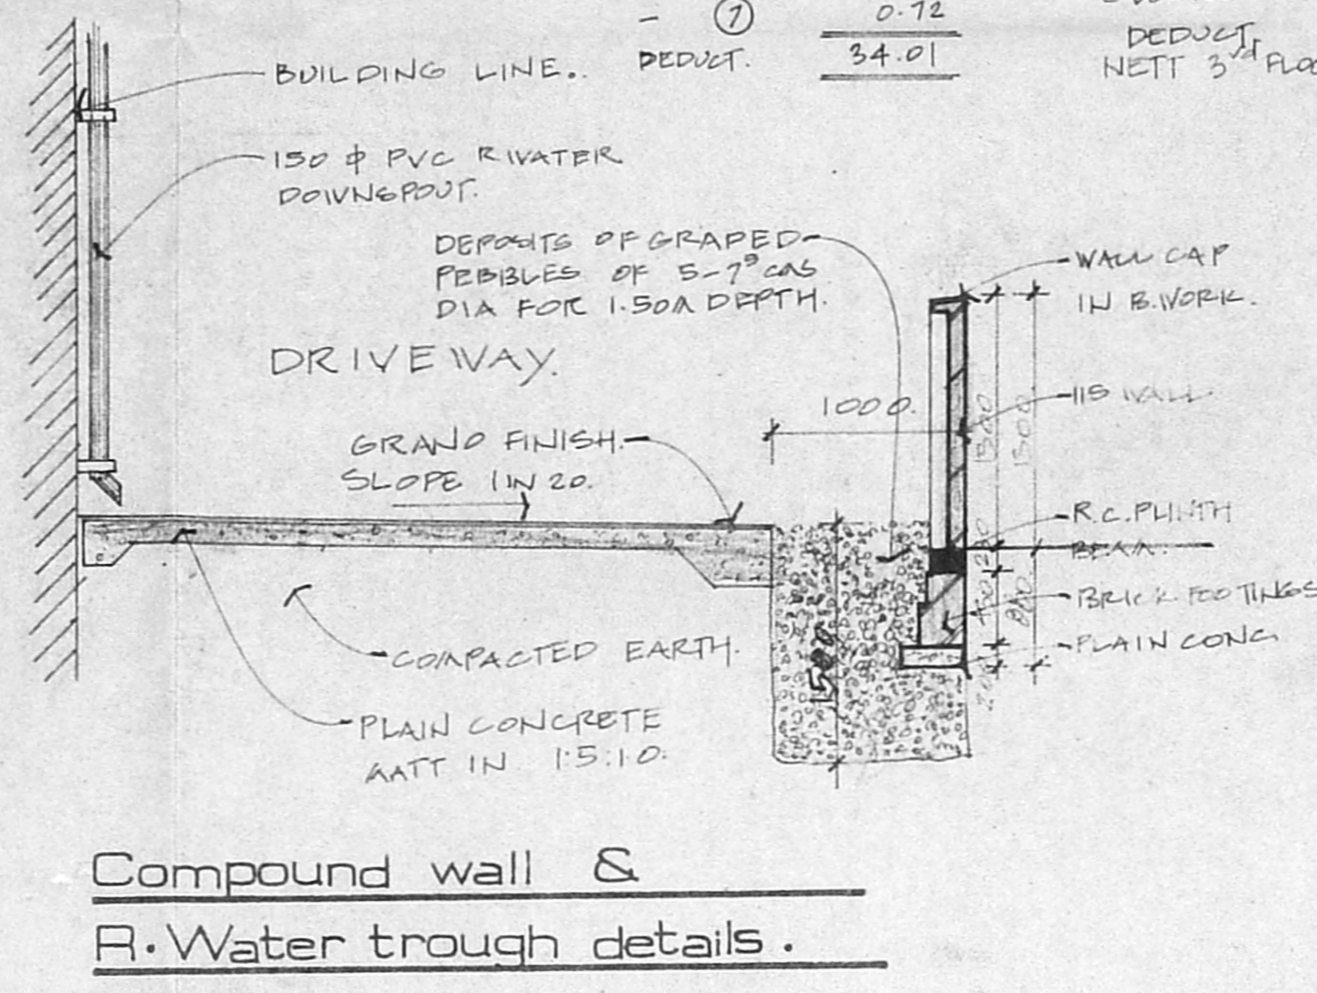 - 1 0.72
DEDUCT. 34.01
DEDUCT.
NETT 3rd FLOO
BUILDING LINE.
150 φ PVC R.WATER
DOWNSPOUT.
DEPOSITS OF GRADED
PEBBLES OF 5-7 cms
DIA FOR 1.50M DEPTH.
DRIVEWAY.
WALL CAP
IN B.WORK.
1000.
115 WALL
1500
1500
GRANO FINISH.
SLOPE 1 IN 20.
R.C. PLINTH
BEAM.
BRICK FOOTINGS
PLAIN CONC
1500
COMPACTED EARTH.
PLAIN CONCRETE
IN 1:5:10.
Compound wall &
R.Water trough details.